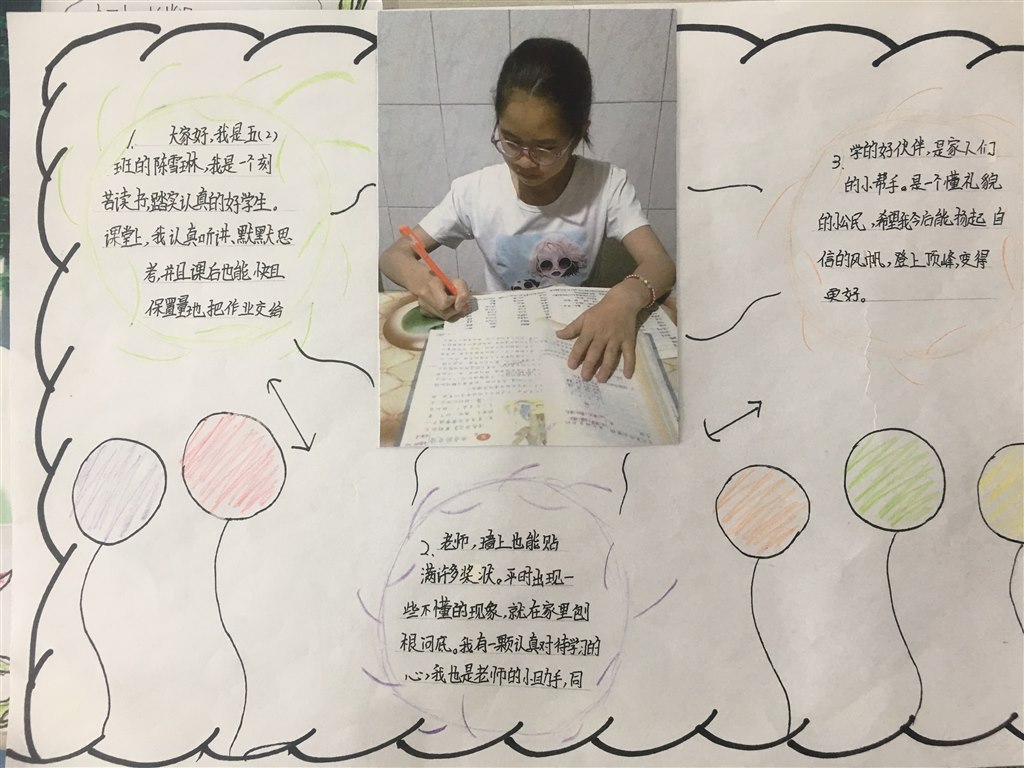 1. 大家好,我是五(2)
班的陈雪琳,我是一个刻
苦读书,踏实认真的好学生。
课堂上,我认真听讲、默默思
考,并且课后也能快且
保置量地把作业交给
2. 老师,墙上也能贴
满许多奖状。平时出现一
些不懂的现象,就在家里刨
根问底。我有一颗认真对待学习的
心,我也是老师的小助手,同
3. 学的好伙伴,是家人们
的小帮手。是一个懂礼貌
的小公民,希望我今后能扬起自
信的风帆,登上顶峰,变得
更好。